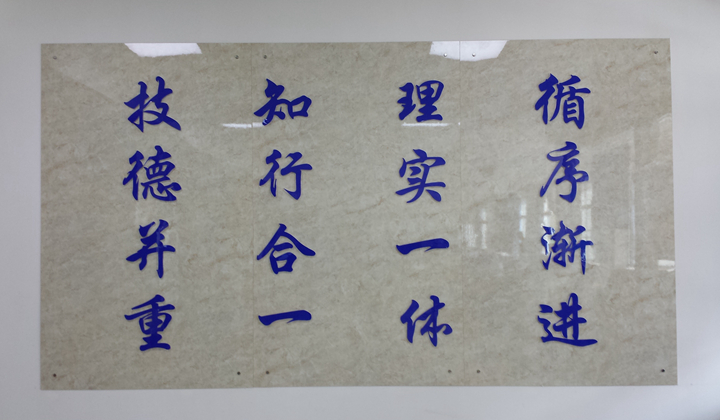 技德并重
知行合一
理实一体
循序渐进